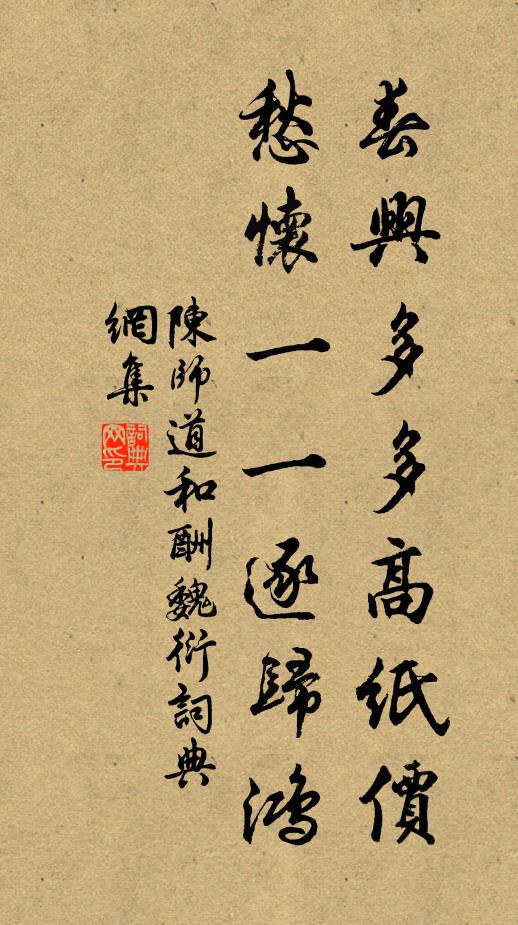 春興多多高紙價
愁懷一一逐歸鴻
陳師道和酬魏衍詞典
網集
詞典
网印